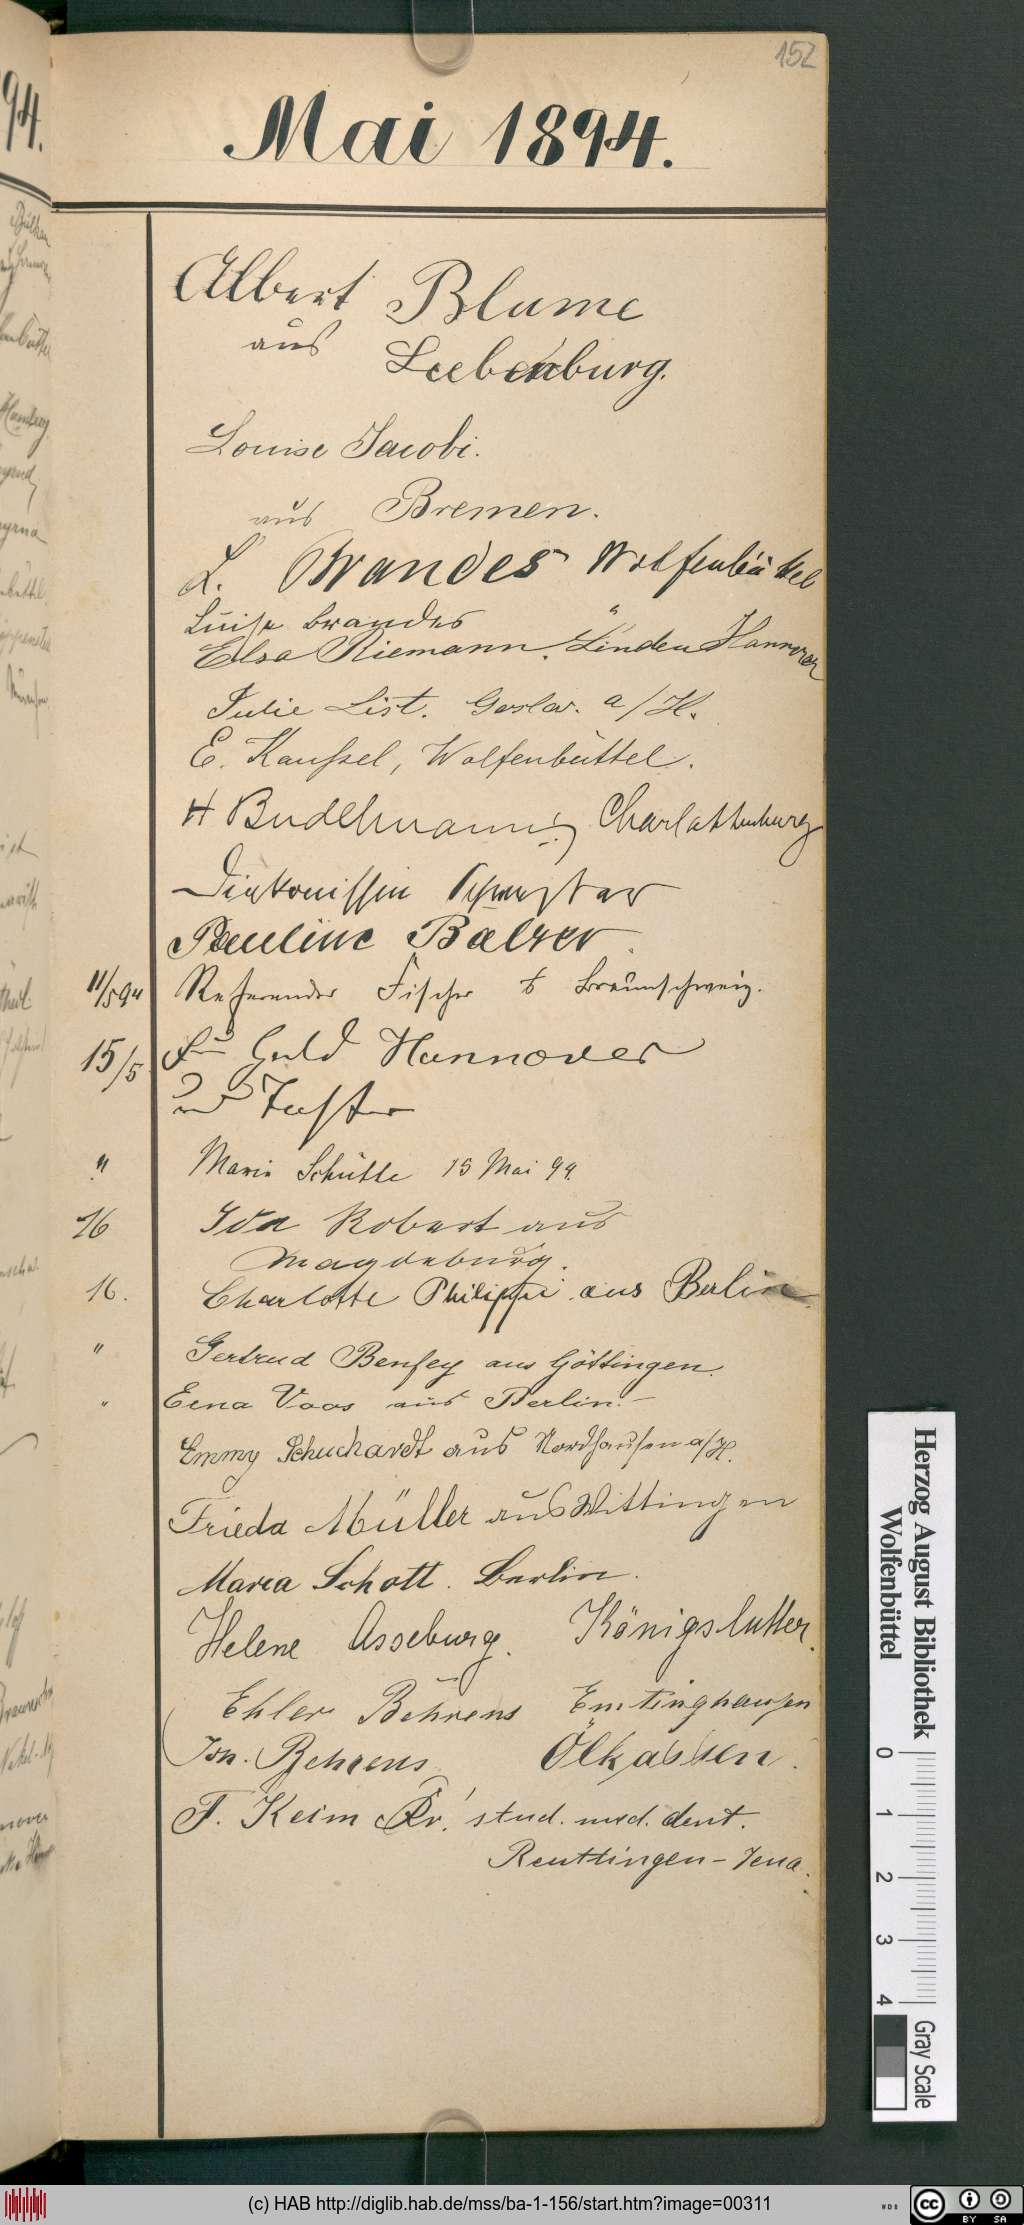 152
Mai 1894.
Albert Blume
aus Liebenburg.
Louise Jacobi.
aus Bremen.
L. Brandes Wolfenbüttel
Luise Brandes
Elsa Riemann. Linden Hannover
Julie List. Goslar. a/H.
E. Wolfenbüttel.
H Budelmann, Charlottenburg
Diakonissin Schwester
Pauline Balzer.
11/5 94 Referendar Fischer Braunschweig.
15/5 Hannover
und Tochter
" Marie Schütte 15 Mai 94.
16 Ida Robert aus
Magdeburg.
16. Charlotte Philippi aus Berlin
" Gertrud Benfey aus Göttingen.
" Erna Voos aus Berlin.
Emmy Schuchardt aus Nordhausen a/H.
Frieda Müller aus Wittingen
Maria Schott. Berlin.
Helene Asseburg. Königslutter.
Ehler Behrens Emtinghausen
Joh. Behrens
F. Keim stud. med. dent.
Reuttingen - Jena.
Herzog August Bibliothek
Wolfenbüttel
0 1 2 3 4
Gray Scale
(c) HAB http://diglib.hab.de/mss/ba-1-156/start.htm?image=00311
WDB
cc BY SA